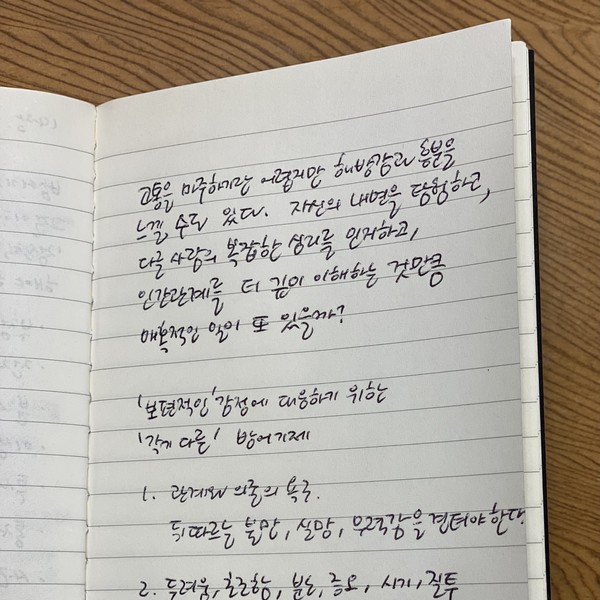 고통을 마주하기란 어렵지만 해방감과 흥분을
느낄 수도 있다. 자신의 내면을 탐험하고,
다른 사람의 복잡한 심리를 인지하고,
인간관계를 더 깊이 이해하는 것만큼
매혹적인 일이 또 있을까?
'보편적인' 감정에 대응하기 위한
'각기 다른' 방어기제
1. 관계와 의존의 욕구.
뒤따르는 불만, 실망, 무력감을 견뎌야 한다.
2. 두려움, 혼란함, 분노, 증오, 시기, 질투